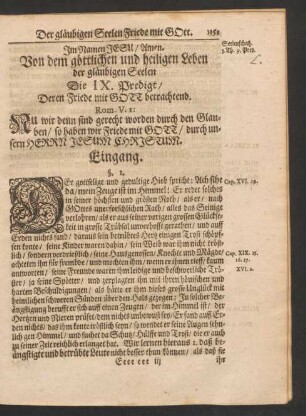 Der gläubigen Seelen Friede mit GOtt.
Im Namen JESU / Amen.
Von dem göttlichen und heiligen Leben
der gläubigen Seelen
Die IX. Predigt /
Deren Friede mit GOTT betrachtend.
Rom. V. 1:
NU wir denn sind gerecht worden durch den Glau-
ben / so haben wir Friede mit GOTT / durch un-
sern HERRN JESUM CHRISTUM.
Eingang.
§. 1.
DEr gottselige und gedültige Hiob spricht: Auch siehe
da / mein Zeuge ist im Himmel: Er redet solches
in seiner höchsten und größten Noth / als er nach
GOttes unerforschlichen Rath / alles das Seinige
verlohren / als er aus seiner vorigen grossen Glückselig-
keit in grosse Trübsal unverhofft gerathen / und auff
Erden nichts fand / daraus sein betrübtes Hertz einigen Trost schöpf-
fen konte / seine Kinder waren dahin / sein Weib war ihm nicht tröst-
lich / sondern vordrößlich / seine Haußgenossen / Knechte und Mägde /
achteten ihn für frembde / und möchten ihm / wenn er ihnen rieff / kaum
antworten / seine Freunde waren ihm leidige und beschwerliche Trö-
ster / ja seine Spötter / und
harten Beschüldigungen / als hätte er ihm diese grosse Unglück mit
heimlichen schweren Sünden über den Halß gezogen: In solcher Be-
ängstigung berufft er sich auff einen Zeugen / der im Himmel ist / der
Hertzen und Nieren prüfet / dem nichts unbewust sey / Er fand auff Er-
den nichts / das ihm konte tröstlich seyn / so wendet er seine Augen sehn-
lich gen Himmel / und suchet da Schutz / Hülffe und Trost / die er auch
zu seiner Zeit reichlich erlanget hat. Wir lernen hieraus 1. daß be-
ängstigte und betrübte Leute nicht besser thun können / als daß sie
Eeee eee iij
ihr
Seelenschatz.
3. Th. 9. Pred.
Cap. XVI. 19.
Cap. XIX. 15.
16. 17.
XVI. 2.